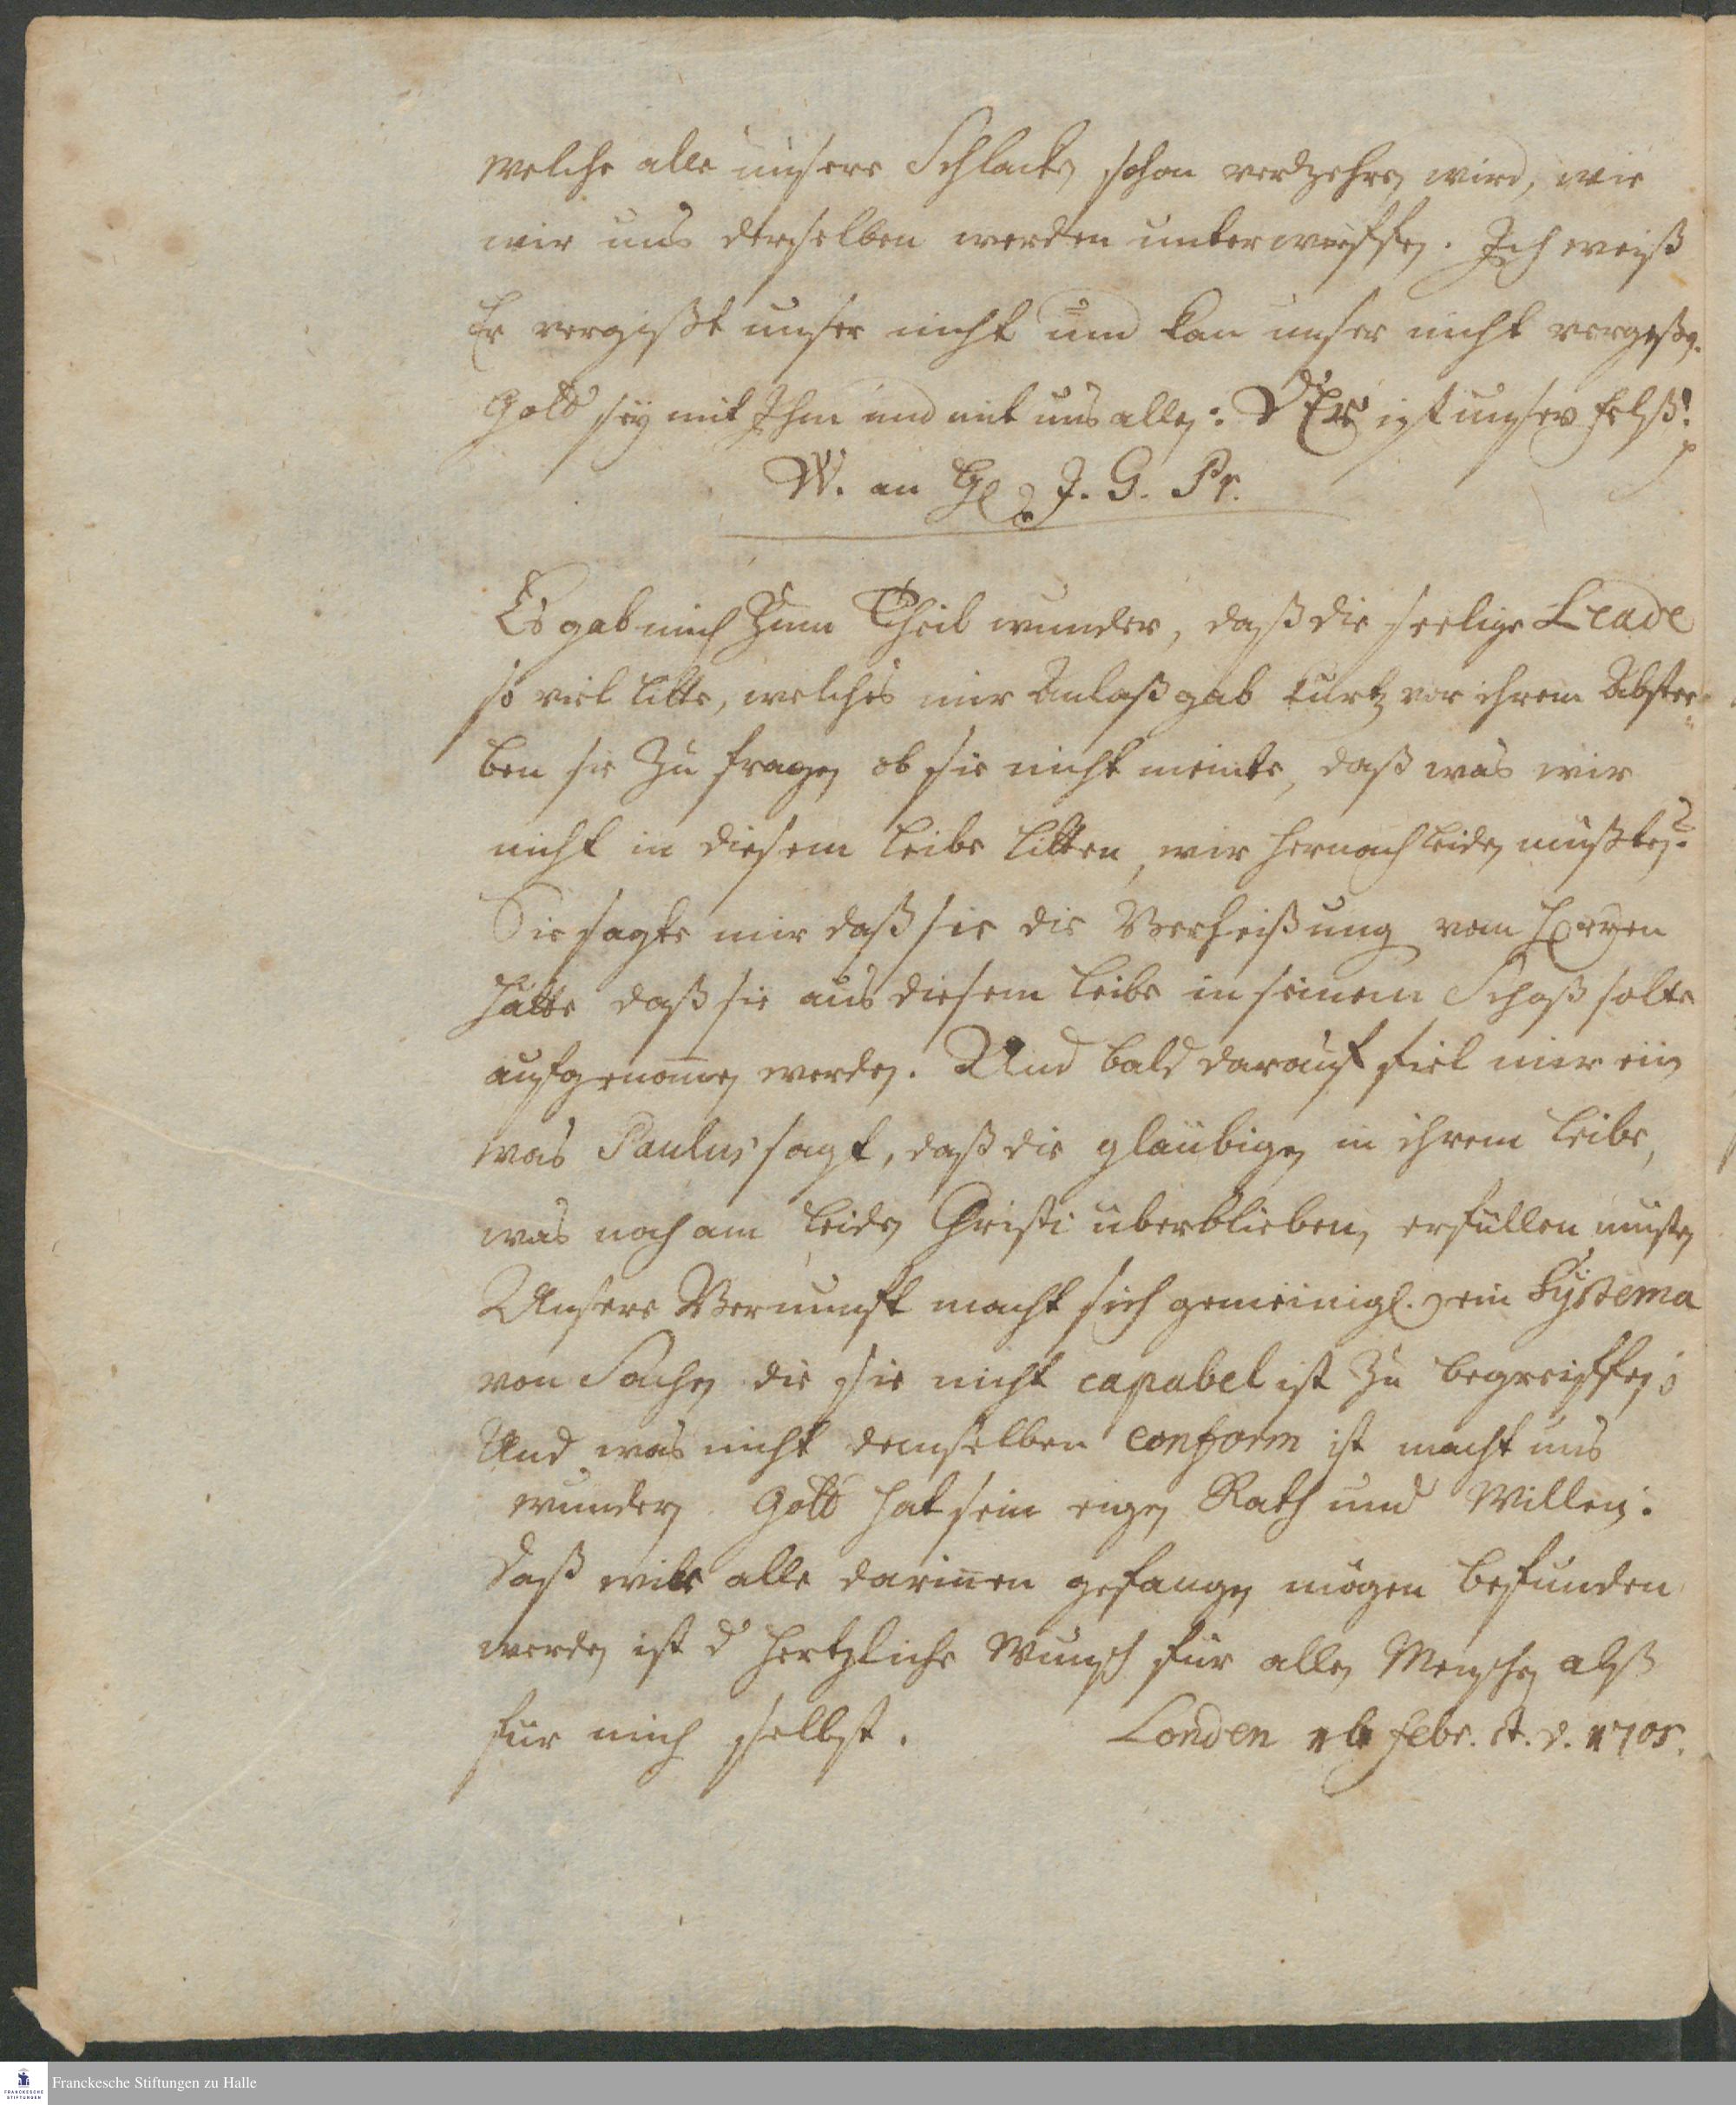 welche alle unsere Schlacken schon verdzehren wird, wie
wir uns derselben werden unterwerffen. Ich weiß
Er vergißt unser nicht und kan unser nicht vergeßen.
Gott sey mit Ihm und mit uns allen: DEr ist unser Felß!
W. an J. G. Pr.
Es gab mich Zum Theil wunder, daß die seelige Leade
so viel litte, welches mir Anlaß gab kurtz vor ihrem Abster-
ben sie Zu fragen ob sie nicht meinte, daß was wir
nicht in diesem Leibe litten, wir hernach leiden müßten?
Sie sagte mir daß sie die Verheißung vom HErren
hätte daß sie aus diesem Leibe in seinem Schoß solte
aufgenom̄en werden. Und bald darauf fiel mir ein
was Paulus sagt, daß die gläubigen in ihrem Leibe,
was noch am Leiden Christi überblieben, erfüllen musten
Unsere Vernunft macht sich gemeinigl. ein Systema
von Sachen die sie nicht capabel ist Zu begreiffen;
Und was nicht demselben conform ist macht uns
wundern Gott hat sein eigen Rath und Willen:
Daß wir alle darinnen gefangen mögen befunden
werden ist d hertzliche Wunsch für allen Menschen alß
für mich selbst. Londen 16 Febr. st. v. 1705.
Franckesche Stiftungen zu Halle
FRANCKESCHE
STIFTUNGEN